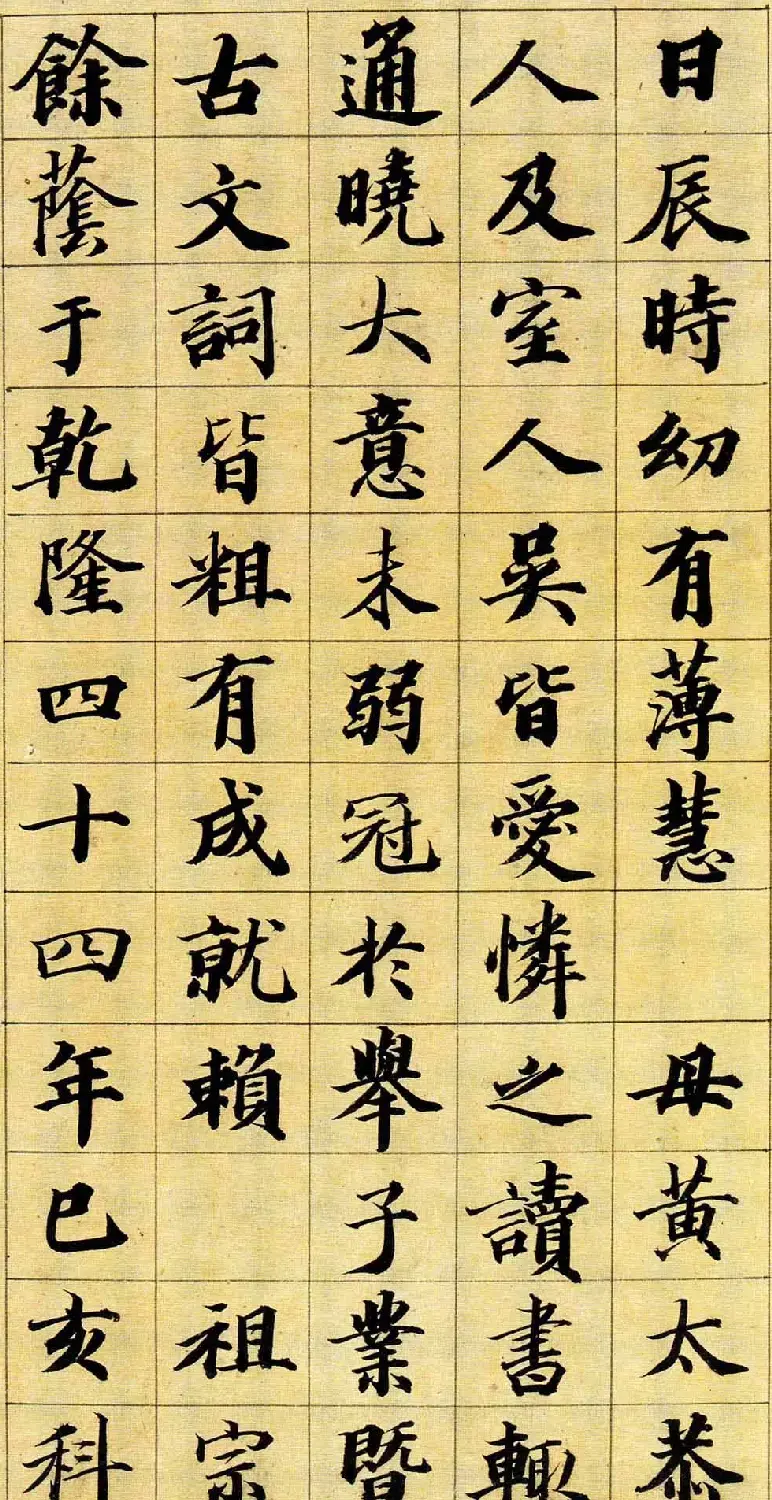 日辰時幼有薄慧　母黃太恭
人及室人吳皆愛憐之讀書輒
通曉大意未弱冠於舉子業暨
古文詞皆粗有成就賴　祖宗
餘蔭于乾隆四十四年巳亥科